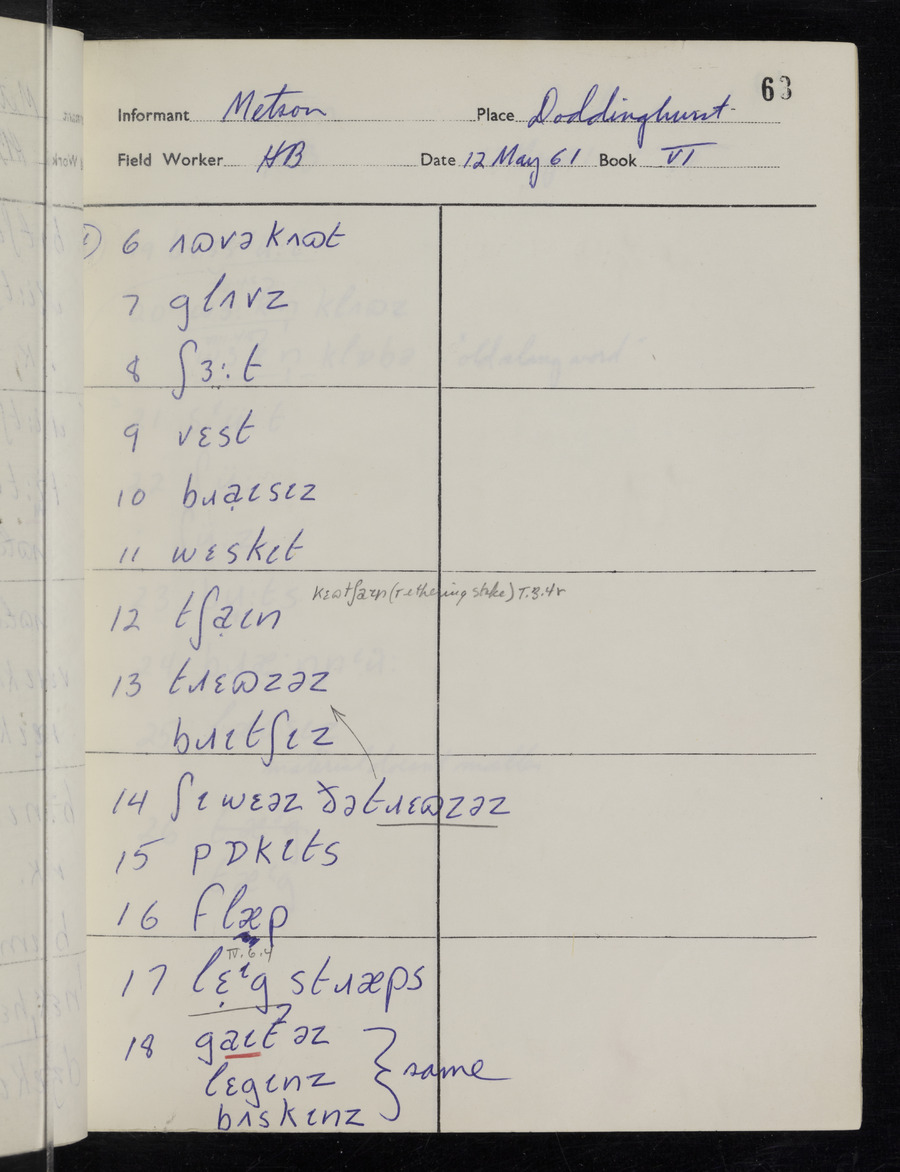 63
Informant Metson Place Doddinghurst
Field Worker HB Date 12 May 61 Book VI
6 ɹɷvə kɹɷt
7 glʌvz
8 ʃɜ:t
9 vɛst
10 bɹạɪsɪz
11 wɛskɪt
(Tethering stake)
12 tʃạɪn
13 tɹɛɷzəz
bɹɪtʃɪz
14 ʃɪ wɛəz ðətɹɛɷzəz
15 pɒkɪts
16 flæp
IV.6.4
17 lɛ̣ᶦg stɹæps
18 gaɪtəz
lɛgɪnz
same
bʌskɪnz